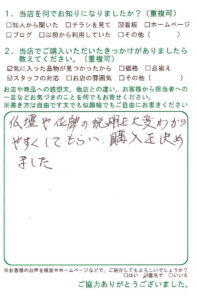 1．当店を何でお知りになりましたか？（重複可）
□知人から聞いた □チラシを見て ☑看板 □ホームページ
□ブログ □以前から利用していた □その他（　　　）
2．当店でご購入いただいたきっかけがありましたら
教えてください。（重複可）
☑気に入った品物が見つかったから □価格 □品揃え
☑スタッフの対応 □お店の雰囲気 □その他（　　　）
お店や商品への感想文、他店との違い、お客様から担当者への
一言などお気づきのことを何でもお寄せください。
※書き方は自由です文でも似顔絵でもご自由にお書きください
仏壇や位牌の説明を大変わかり
やすくしてもらい、購入を決め
ました
※お客様のお声を様店やホームページなどで、ご紹介してもよろしいでしょうか？
□はい ☑匿名で □いいえ
ご協力ありがとうございました。